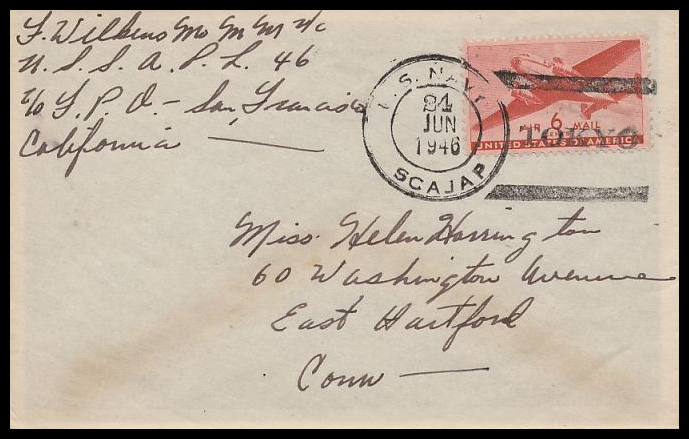 F. Wilkins Mo M M 2/c
U. S. S. A. P. L. 46
c/o F. P. O. - San Francisco
California
U.S. NAVY
24
JUN
1946
SCAJAP
AIR 6 MAIL
UNITED STATES OF AMERICA
TOKYO
Miss. Helen Harrington
60 Washington Avenue
East Hartford
Conn